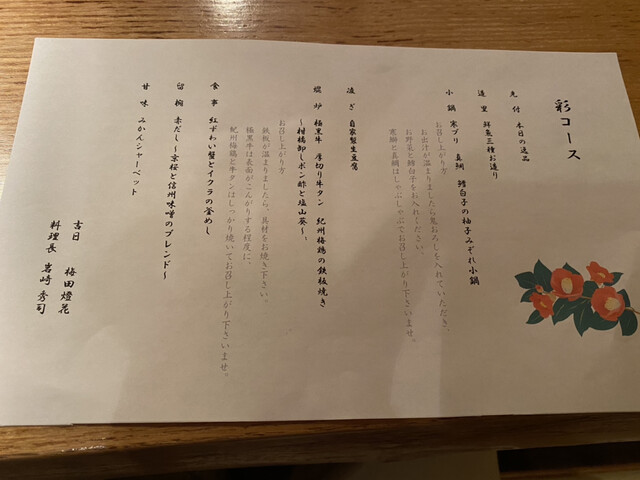 彩コース
先付 本日の逸品
造里 鮮魚三種お造り
小鍋 寒ブリ 真鯛 鱈白子の柚子みぞれ小鍋
お召し上がり方
お出汁が温まりましたら鬼おろしを入れていただき、
お野菜と鱈白子をお入れください。
寒鰤と真鯛はしゃぶしゃぶでお召し上がり下さいませ。
凌ぎ 自家製生豆腐
焜炉 極黒牛 厚切り牛タン 紀州梅鶏の鉄板焼き
～柑橘卸しポン酢と塩山葵～
お召し上がり方
鉄板が温まりましたら、具材をお焼き下さい。
極黒牛は表面がこんがりする程度に、
紀州梅鶏と牛タンはしっかり焼いてお召し上がり下さいませ。
食事 紅ずわい蟹とイクラの釜めし
留椀 赤だし～京桜と信州味噌のブレンド～
甘味 みかんシャーベット
吉日 梅田燈花
料理長 岩崎秀司